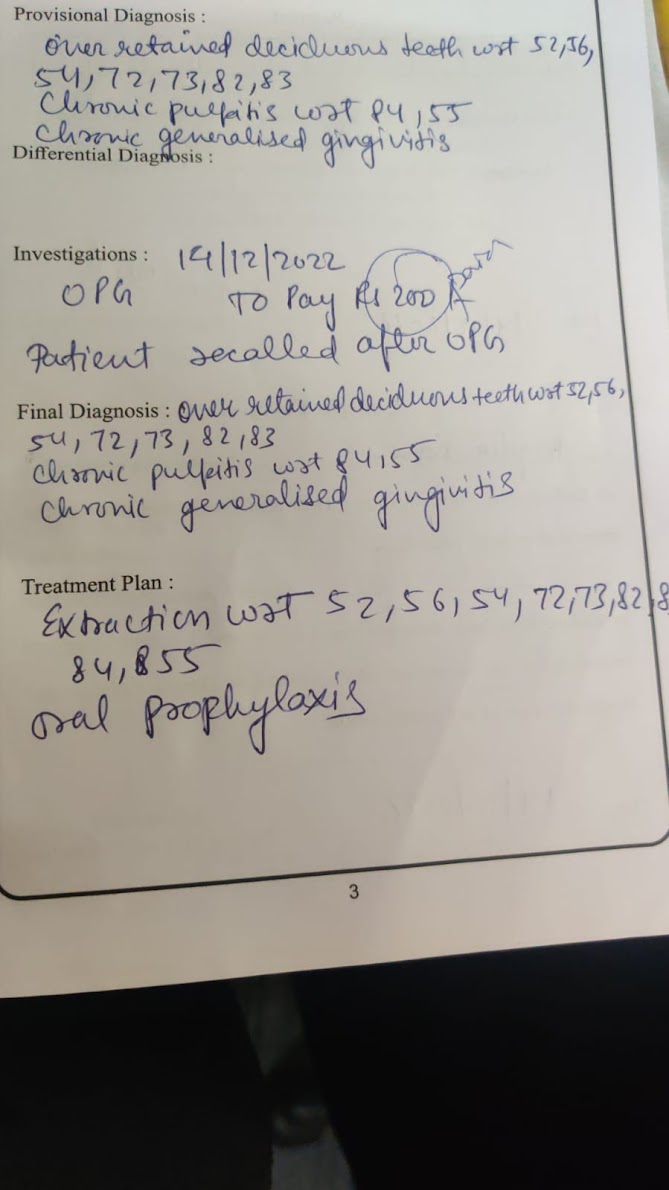 Provisional Diagnosis :
Over retained deciduous teeth wrt 52,56,
54,72,73,82,83
Chronic pulpitis wrt 84,55
Chronic generalised gingivitis
Differential Diagnosis :
Investigations : 14/12/2022
OPG To Pay Rs 200 paid
Patient recalled after OPG
Final Diagnosis : Over retained deciduous teeth wrt 52,56,
54, 72, 73, 82,83
Chronic pulpitis wrt 84,55
Chronic generalised gingivitis
Treatment Plan :
Extraction wrt 52,56,54,72,73,82,8
84,55
Oral prophylaxis
3